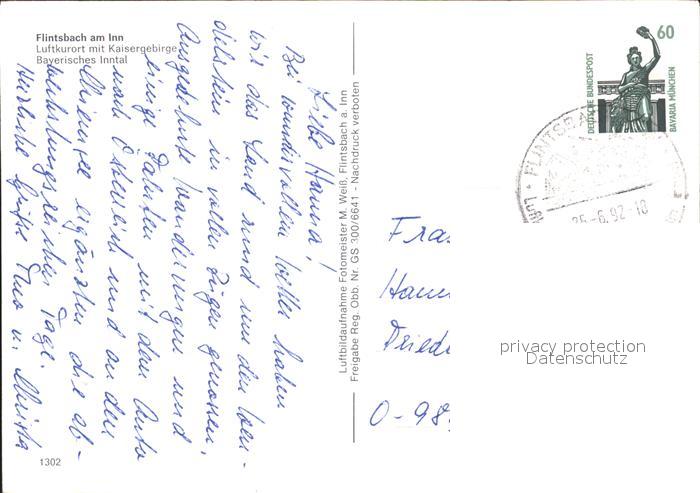 Flintsbach am Inn
Luftkurort mit Kaisergebirge
Bayerisches Inntal
Liebe Hanna!
Bei wundervollem Wetter haben
wir das Land rund um den Wen-
delstein in vollen Zügen genossen.
Ausgedehnte Wanderungen und
einige Fahrten mit dem Auto
nach Österreich und an den
Chiemsee ergänzten die ab-
wechslungsreichen Tage.
Herzliche Grüße u. Christa
1302
Luftbildaufnahme Fotomeister M. Weiß, Flintsbach a. Inn
Freigabe Reg. Obb. Nr. GS 300/6641 - Nachdruck verboten
60
DEUTSCHE BUNDESPOST
BAYARIA MÜNCHEN
FLINTSBA
-6.92-10
Frau
Hann
Friedr
O-98
privacy protection
Datenschutz